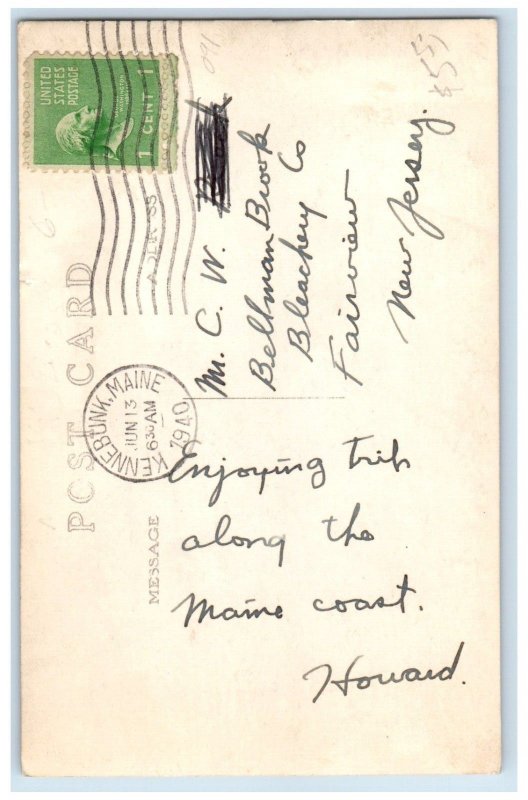 UNITED
STATES
POSTAGE
1 CENT 1
POST CARD
ADDRESS
KENNEBUNK, MAINE
JUN 13
630 AM
1940
MESSAGE
Mr. C. W.
Bellman Brook
Bleachery Co
Fairview
New Jersey.
Enjoying trip
along the
Maine coast.
Howard.